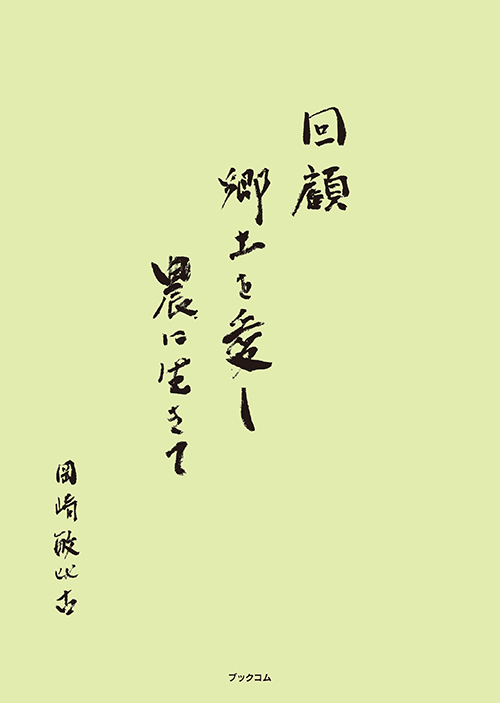 回顧
郷土を愛し
農に生きて
岡崎敏比古
ブックコム